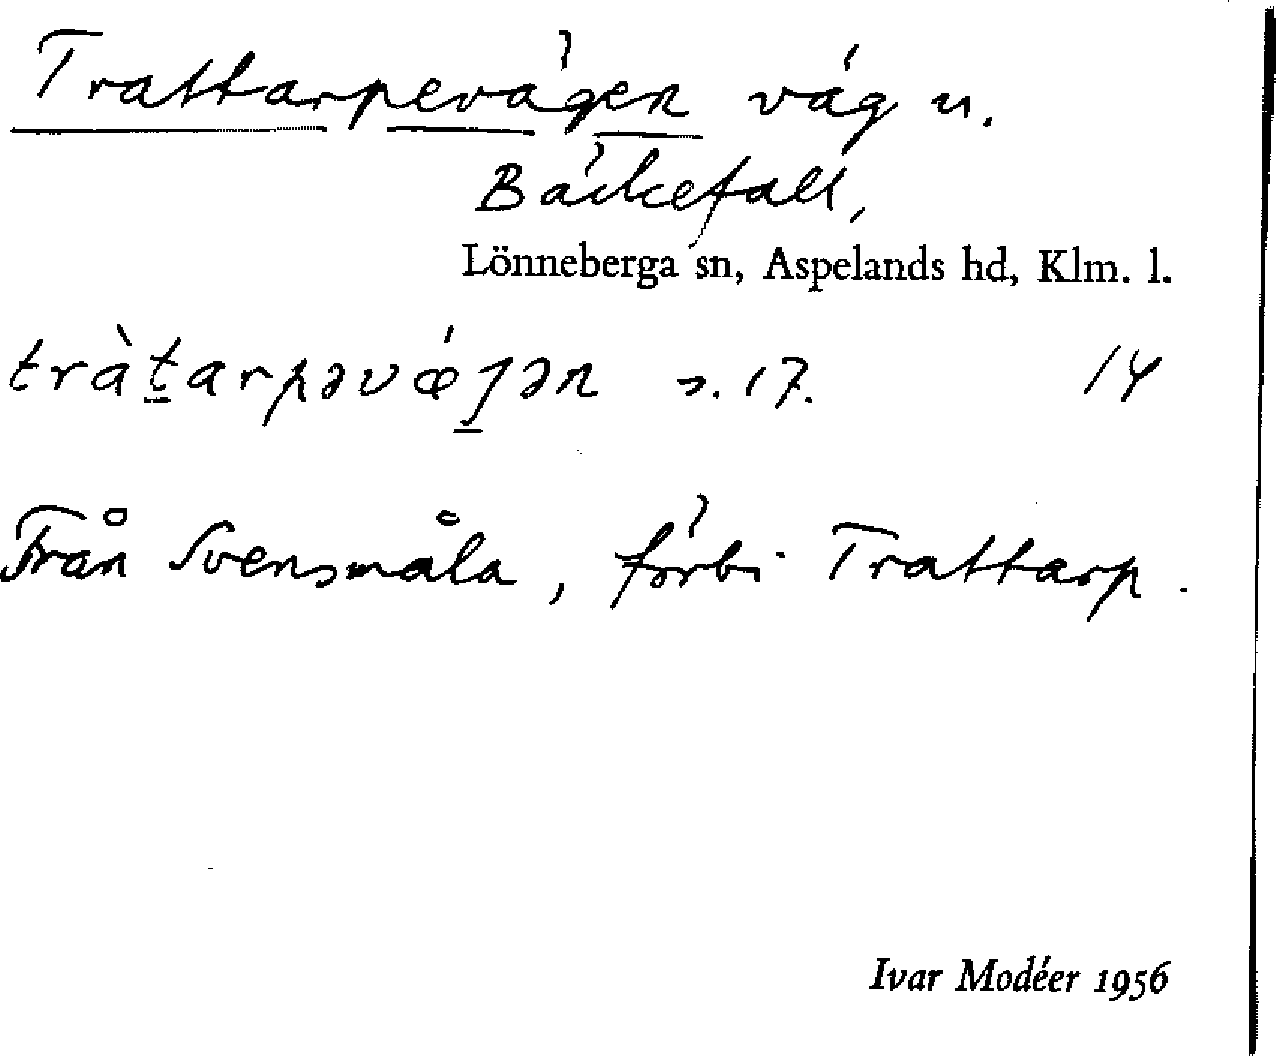 Trattarpevägen väg u.
Bäckefall,
Lönneberga sn, Aspelands hd, Klm. l.
tràt̠arpəvǿȷ̠ən s. 17. 14
Från Svensmåla, förbi Trattarp.
Ivar Modéer 1956